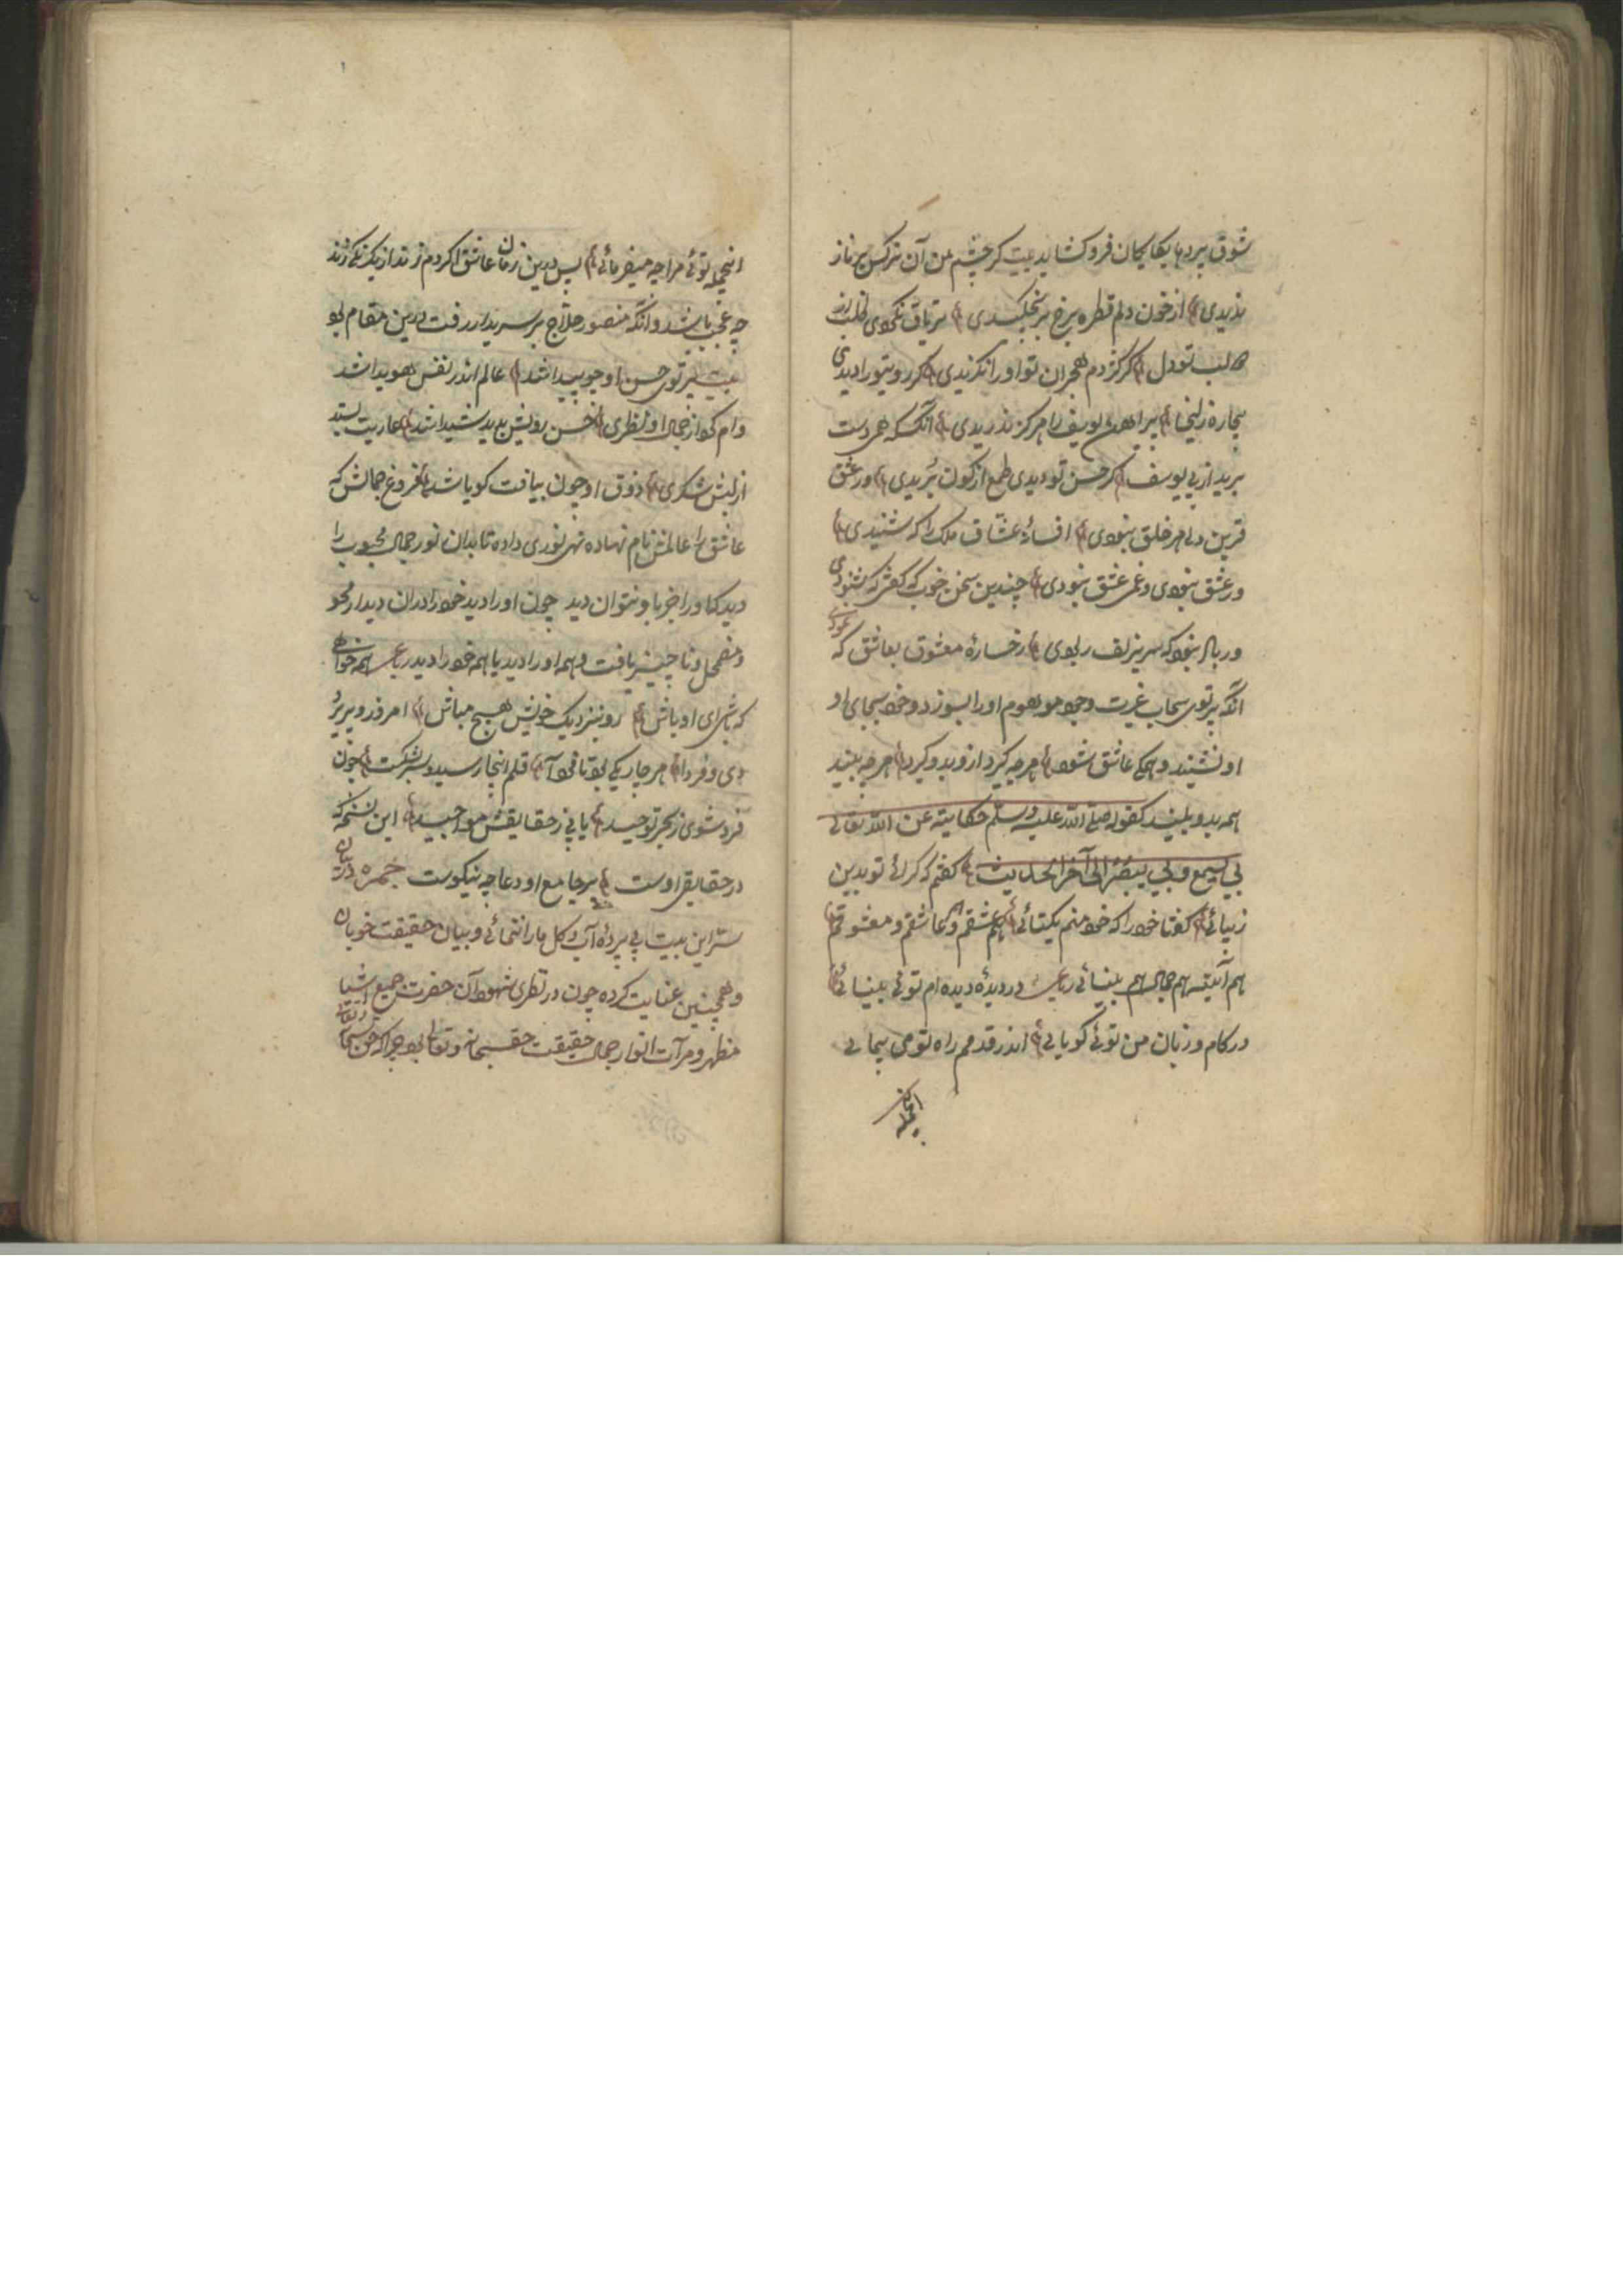 شوق پردها یکا یکان فروکشاید بیت کر چشم من آن نرکس پرناز
ندیدی از خون دلم قطره برخ بر نچکیدی تریاق نکوی
لب تو دل کر کژدم هجران تو اورا نکزیدی کر روی تورا دیدی
بیچاره زلیخا پیراهن یوسف را هرکز ندریدی آنکسکه همی دست
برید از پی یوسف کر حسن تو دیدی طمع از کون بریدی ور عشق
قرین دل هر خلق نبودی افسانهٔ عشاق ملک را که شنیدی
ور عشق نبودی و غم عشق نبودی چندین سخن خوب که کفتی که شنودی
ور باد نبود که سر زلف ربودی رخسارهٔ معشوق بعاشق که
نمودی
آنکه پرتوی سحاب غیرت وجود موهوم اورا بسوزد و خود بجای او
او نشیند و همکی عاشق شود هرچه کیرد ازو بدو کیرد هرچه بیند
همه بدو بیند کقوله صلی الله علیه وسلم حکایته عن الله تعالی
بی یسمع وبی یبصر الی آخر الحدیث کفتم که کرائی تو بدین
زیبائی کفتا خود را که خود منم یکتائی هم عشقم و هم عاشقم و معشوقم
هم آئینه هم جمال هم بینائی رباعی در دیدهٔ دیده ام توئی بینائی
در کام و زبان من توئی کویائی اندر قدمم راه تو می پیمائی
اینجمله
اینجمله توئی مرا چه میفرمائی پس درین زمان عاشق اکر دم زند از یکرنکی زند
چه عجب باشد وانکه منصور حلاج بر سریدار رفت درین مقام بود
بیت پرتوی حسن او چو پیدا شد عالم اندر نفس هویدا شد
وام کرد از جمال او نظری حسن رویش بدید شیدا شد عاریت بستد
از لبش شکری ذوق او چون بیافت کویا شد فروغ جمالش که
عاشق را عالمش نام نهاده نهر نوری داده تا بدان نور جمال محبوب را
دید که اورا جز باو نتوان دید چون اورا دید خود را دران دیدار محو
و مضمحل و ناچیز یافت و همه اورا دید یا همه خود را دید رباعی همه خواهی
که باشی او را باش رو بنزدیک خویش هیچ مباش امروز و پریر
دی و فردا هر چار یکی بود تو فرد آ قلم اینجا رسید و سر بشکست چون
فرد شوی ز بحر توحید یابی ز حقایقش مواجید این نسخه که
در حقایق اوست بر جامع او دعا چه نیکوست خمره در بیان
ستر این بیت پی پردهٔ آب و کل مارا ننمائی و بیان حقیقت خوبان
و همچنین عنایت کرده چون در نظری شهود آن حضرت جمیع اشیا
مظهر و مرآت انوار جمال حقیقت حق سبحانه و تعالی بود چرا که حق سبحانه
و تعالی